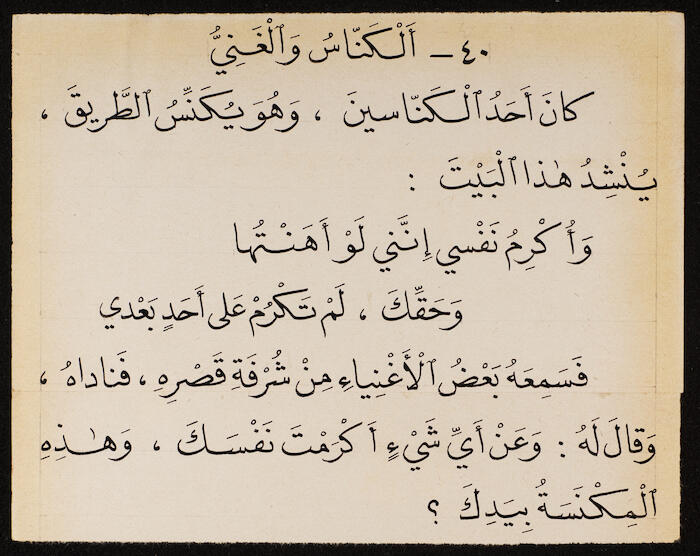 ٤٠ ـ اَلْكَنّاسُ وَٱلْغَنِيُّ
كانَ أَحَدُ ٱلْكَنّاسينَ ، وَهُوَ يُكَنِّسُ ٱلطَّريقَ ،
يُنْشِدُ هٰذا ٱلْبَيْتَ :
وَأُكْرِمُ نَفْسي إِنَّني لَوْ أَهَنْتُها
وَحَقِّكَ ، لَمْ تَكْرُمْ عَلى أَحَدٍ بَعْدي
فَسَمِعَهُ بَعْضُ ٱلْأَغْنِياءِ مِنْ شُرْفَةِ قَصْرِهِ ، فَناداهُ ،
وَقالَ لَهُ : وَعَنْ أَيِّ شَيْءٍ أَكْرَمْتَ نَفْسَكَ ، وَهٰذِهِ
ٱلْمِكْنَسَةُ بِيَدِكَ ؟